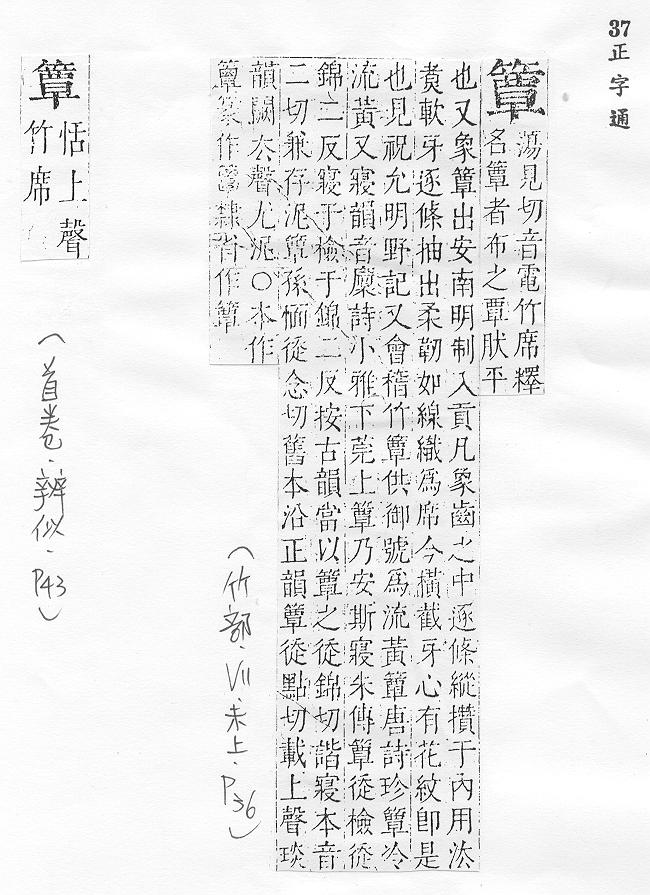 37 正字通
簟
蕩見切音電竹席釋
名簟者布之覃肰平
也又象簟出安南明制入貢凡象齒之中逐條縱攢于內用法
煑軟牙逐條抽出柔韌如線織爲席今橫截牙心有花紋卽是
也見祝允明野記又會稽竹簟供御號爲流黃簟唐詩珍簟冷
流黃又寢韻音廩詩小雅下莞上簟乃安斯寢朱傳簟徒檢徒
錦二反寢于檢于錦二反按古韻當以簟之徒錦切諧寢本音
二切兼存泥簟孫愐徒念切舊本沿正韻簟徒點切載上聲琰
韻闕去聲尤泥○本作
篆作隸省作簟
(竹部.VII.未上.P36)
簟
恬上聲
竹席
(首卷.辨似.P43)